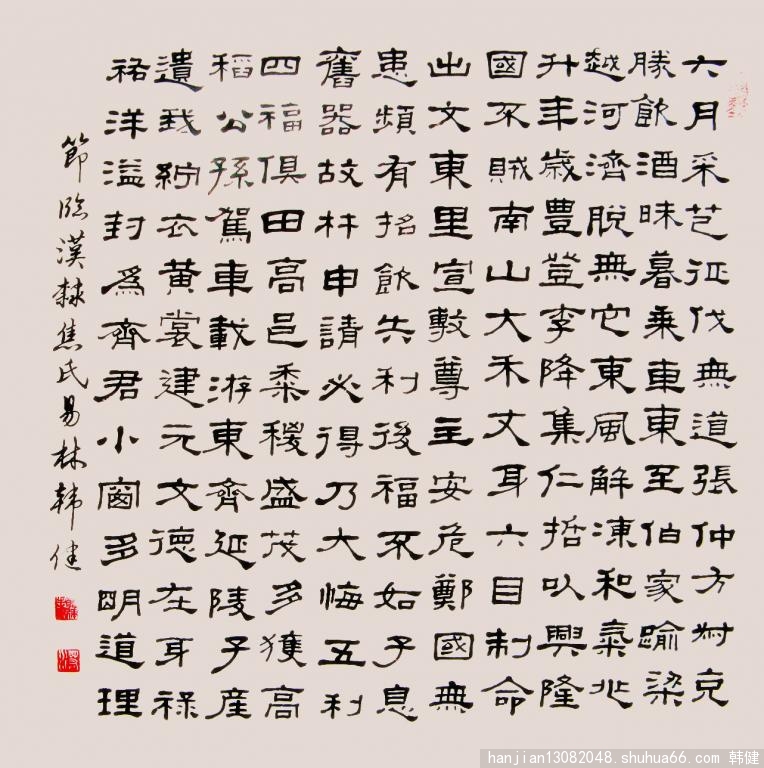 六月采芑征伐無道張仲方叔克
勝飲酒昧暮乗車東至伯家踰梁
越河濟脫無它東風解凍和氣兆
升年歲豊登李降集仁哲以興隆
國不賊南山大禾丈耳六目制命
出文東里宣敷尊主安危鄭國無
患頻有招飲失利後福不如子息
舊器故杵申請必得乃大悔五利
四福俱田高邑黍稷盛茂多獲高
稻公孫駕車載游東齊延陵子產
遺我紵衣黄裳建元文德在耳祿
祐洋溢封爲齊君小窗多明道理
節臨漢隸焦氏易林韩健
hanjian13082048.shuhua66.com 韩健